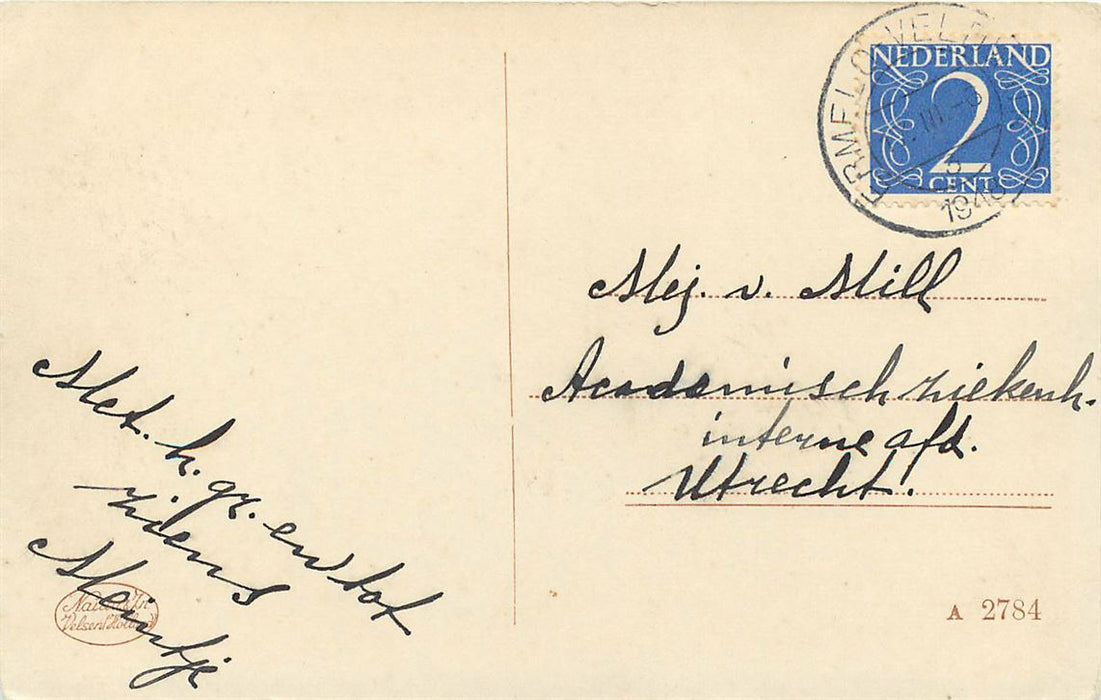 NEDERLAND
2
CENT
ERMELO VEL
III
1948
Mej. v. Mill
Academisch ziekenh.
interne afd.
Utrecht.
Met. h. gr. en tot
ziens
Meintje
Velsen Holl
A 2784